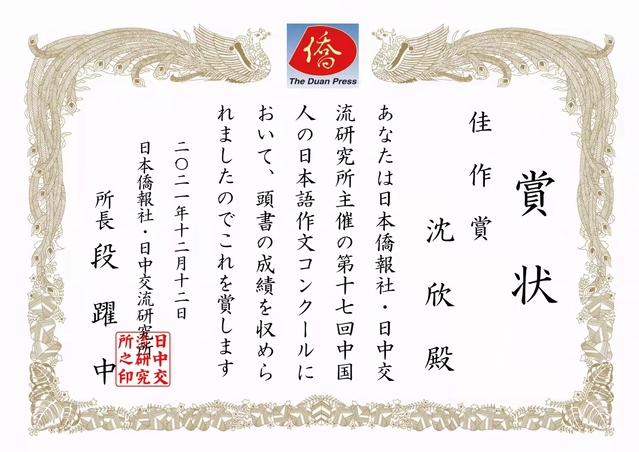 僑
The Duan Press
賞状
佳作賞
沈欣殿
あなたは日本僑報社・日中交
流研究所主催の第十七回中国
人の日本語作文コンクールに
おいて、頭書の成績を収めら
れましたのでこれを賞します
二〇二一年十二月十二日
日本僑報社・日中交流研究所
所長段躍中
日中交
流研究
所之印